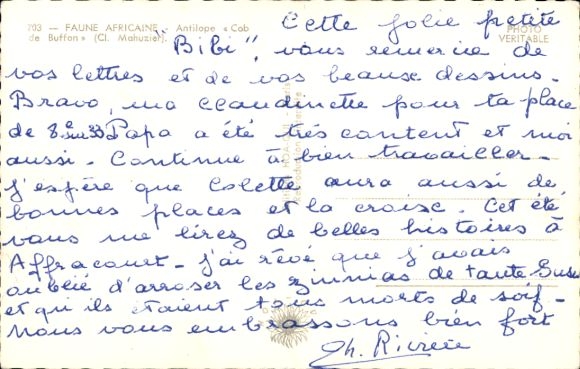 703 — FAUNE AFRICAINE - Antilope « Cob
de Buffon » (Cl. Mahuzier).
PHOTO
VERITABLE
Cette jolie petite
"Bibi", vous remercie de
vos lettres et de vos beaux dessins.
Bravo, ma Claudinette pour ta place
de 8e sur 33 Papa a été très content et moi
aussi. Continue à bien travailler.
J'espère que Colette aura aussi de
bonnes places et la croix. Cet été
vous me lirez de belles histoires à
Affracourt - J'ai rêvé que j'avais
oublié d'arroser les zinnias de tante Suzu
et qu'ils étaient tous morts de soif -
Nous vous embrassons bien fort
Ch. Rivière